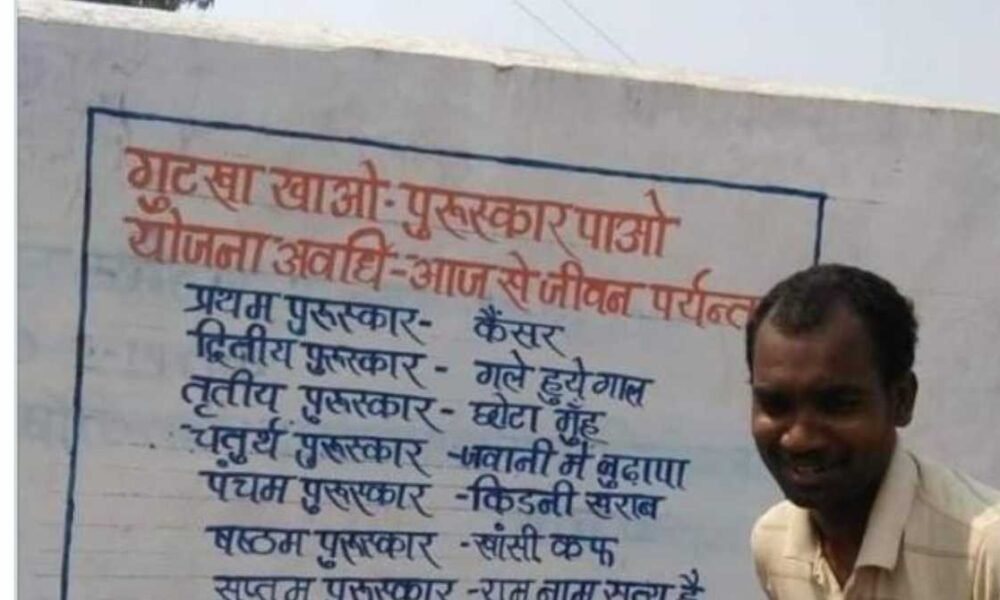 गुटखा खाओ-पुरूस्कार पाओ
योजना अवधि-आज से जीवन पर्यन्त
प्रथम पुरूस्कार- कैंसर
द्वितीय पुरूस्कार- गले हुये गाल
तृतीय पुरूस्कार- छोटा मुँह
चतुर्थ पुरूस्कार -जवानी में बुढ़ापा
पंचम पुरूस्कार -किडनी खराब
षष्ठम पुरूस्कार -खांसी कफ
सप्तम पुरूस्कार -राम नाम सत्य है